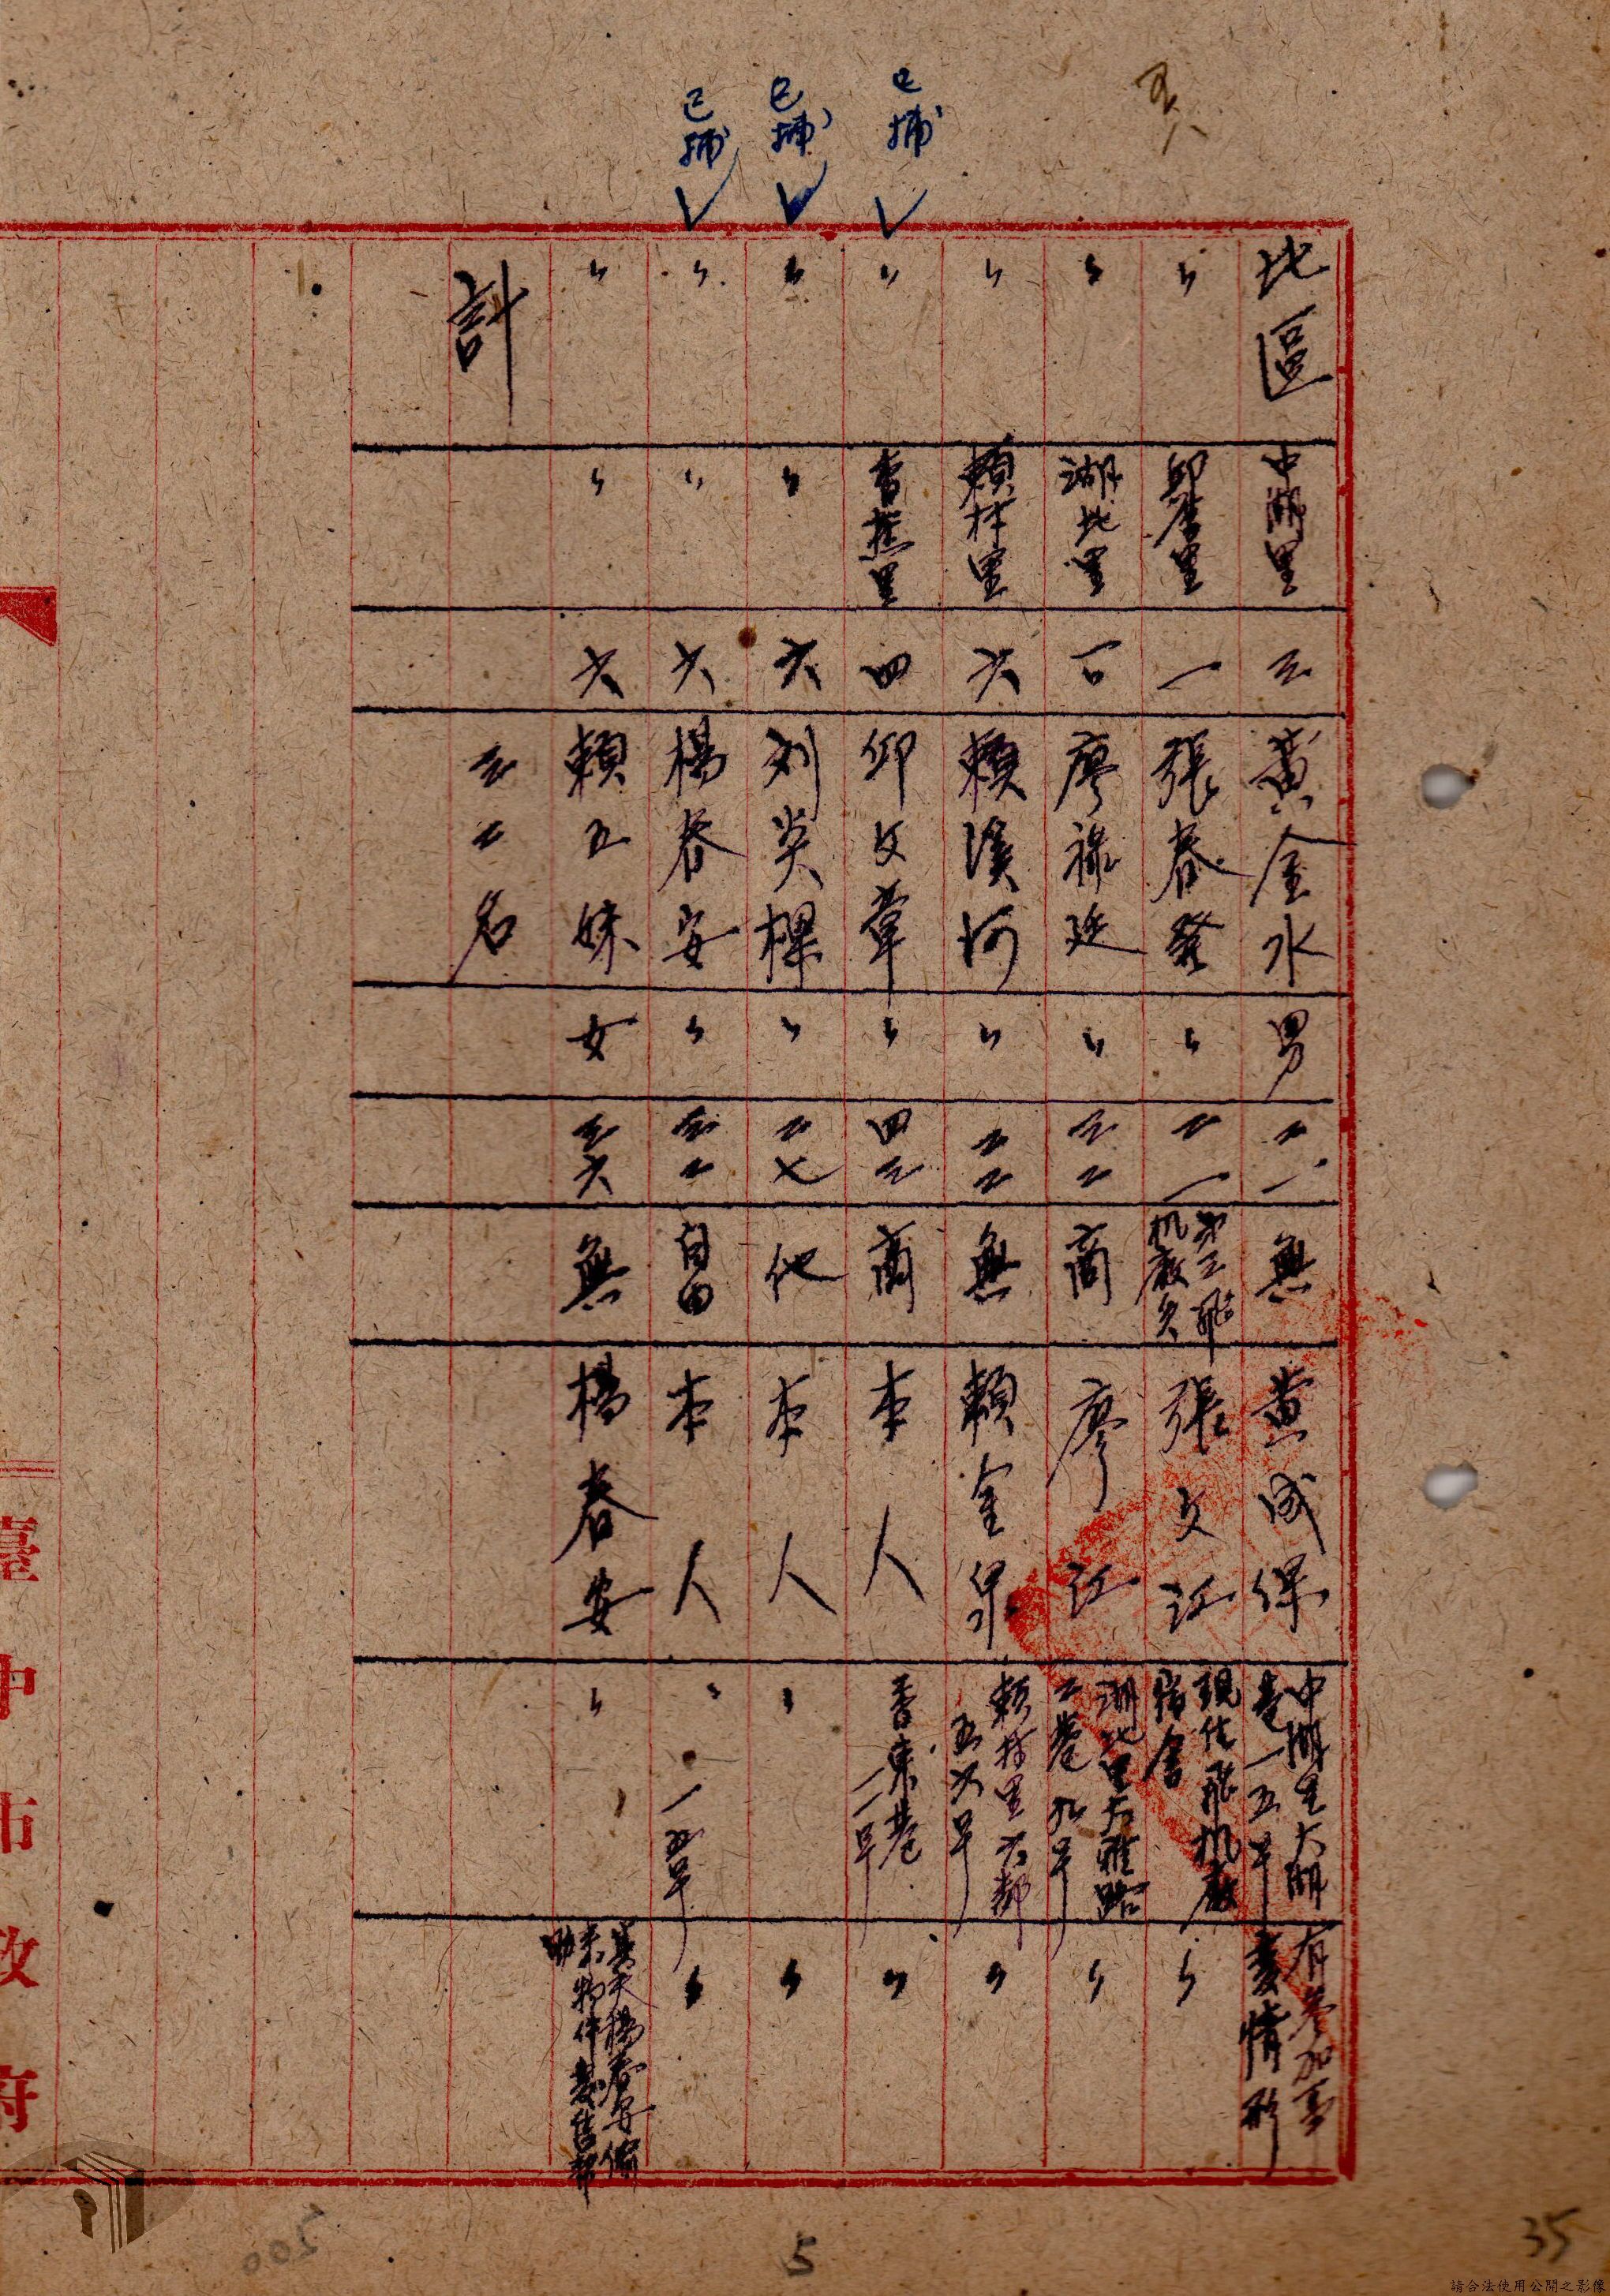 北區 中湖里 三 黃金水 男 二一 無 黃成保 中湖里大湖巷一五号 有參加事變情形
〃 邱厝里 一 張春發 〃 二一 第三飛机廠員 張文江 現住飛机廠宿舍 〃
〃 湖北里 一〇 廖祿廷 〃 三二 商 廖江 湖北里大雅路二巷九号 〃
〃 賴村里 六 賴溪河 〃 二二 無 賴金 賴村里六鄰五六号 〃
已捕
〃 香蕉里 四 邱文章 〃 四三 商 本人 香東巷一一号 〃
已捕
〃 〃 六 刘炎樹 〃 二七 他 本人 〃 〃
已捕
〃 〃 六 楊春安 〃 三二 自由 本人 〃 一五号 〃
〃 〃 六 賴五妹 女 三六 無 楊春安 〃 其夫楊春安偷来物件裝售幫助
計 三二名
臺中市政府
5
35
200
請合法使用公開之影像